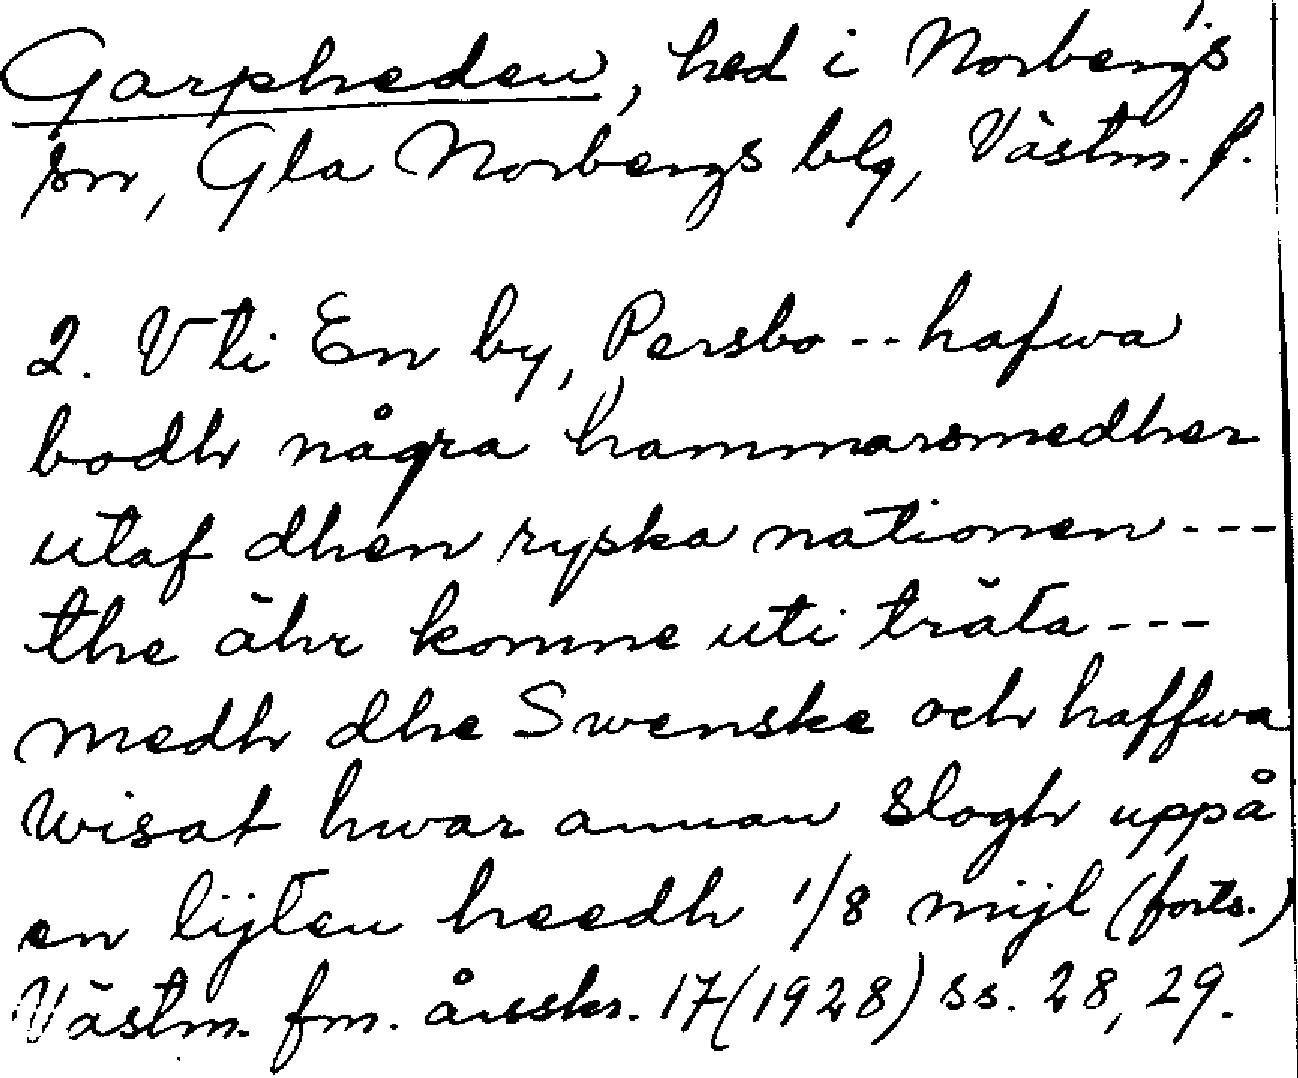 Garpheden, hed i Norbergs
sn, Gla Norbergs blg, Västm. l.
2. Vti En by, Persbo -- hafwa
bodh några hammarsmedher
utaf dhen ryska nationen ---
the ähr komme uti träta ---
medh dhe Swenske och haffwa
wisat hwar annan slogh uppå
en lijten heedh 1/8 mijl (forts.)
Västm. fm. årsskr. 17 (1928) ss. 28, 29.